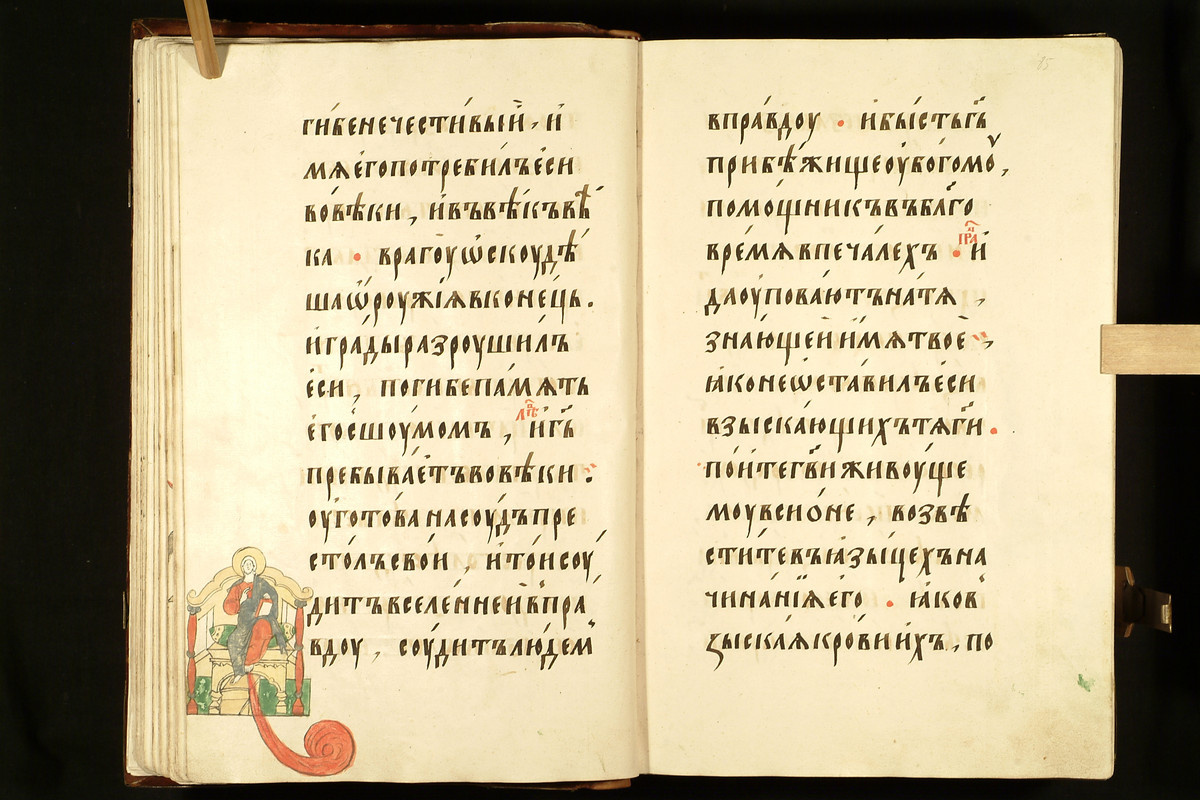 ги́бенечести́выи̑, и҆
мѧе҆гопотреби́лъе҆си
во́вѣки, и҆въвѣ́къвѣ
ка • врагоуѡскоудѣ́
шаѡ҆роужїѧвконе́ць.
и҆гра́дыразроуши́лъ
е҆си, погибепа́мѧть
е҆госшоу́момъ, и҆гь҃
пребыва́етъвовѣки :
оуготованасоу́дъпре
сто́лъсвои, и҆то́исоу́
дитъвселе́ннеи҆впра
вдоу, соу́дитълю́дем
впра́вдоу • и҆бы́стьгь҃
прибѣ́жищеоу҆бо́гомоу,
помо́щникъвъбл҃го
вре́мѧвпеча́лехъ • и҆
даоу҆пова́ютънатѧ,
зна́ющеи҆и҆́мѧтвое
ꙗ҆конеѡста́вилъе҆си
взыска́ющихътѧгⷭ҇и •
по́итегв҃иживоу́ще
моувсио́не, возвѣ
сти́тевъꙗ҆зы́цехъна
чина́нїѧе҆го • ꙗ҆ков
ꙁыска́ѧкро́вии҆́хъ, по